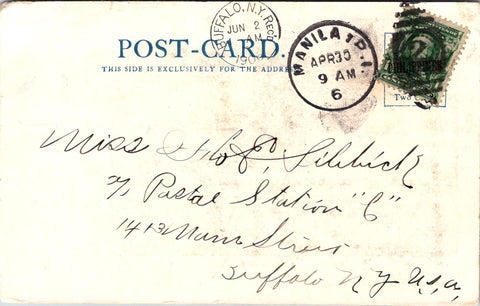 POST-CARD.
THIS SIDE IS EXCLUSIVELY FOR THE ADDRESS
BUFFALO, N.Y. REC'D
JUN 2
AM
190
MANILA, P.I.
APR 30
9 AM
6
Two
Miss
c/o Postal Station "C"
1413 Main Street
Buffalo N Y U.S.a,